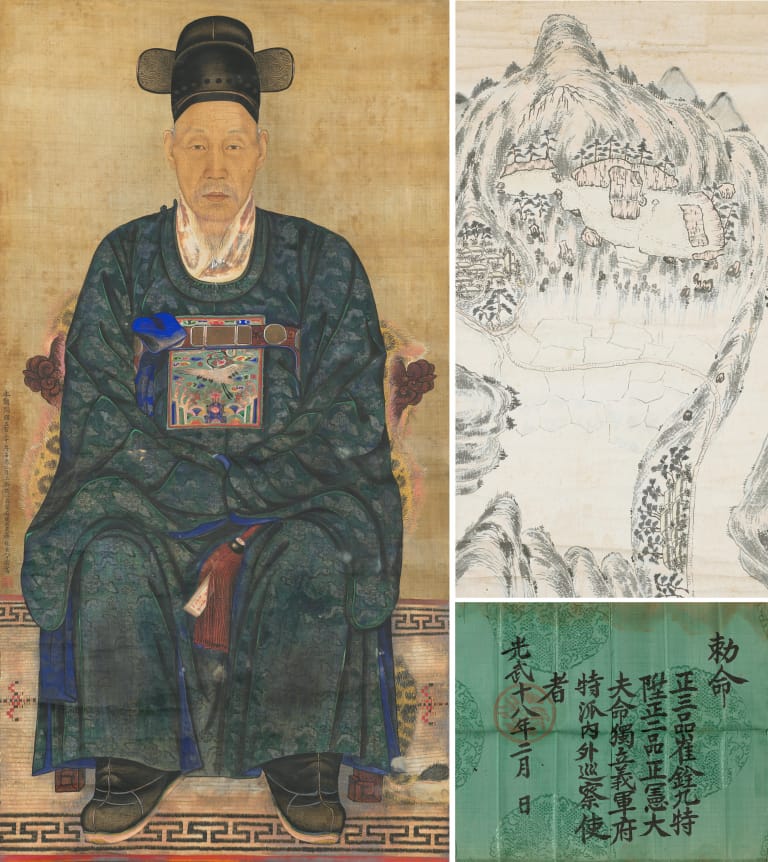 勅命
正三品崔銓九特
陞正二品正憲大
夫命獨立義軍府
特派內外巡察使
者
光武十八年二月 日